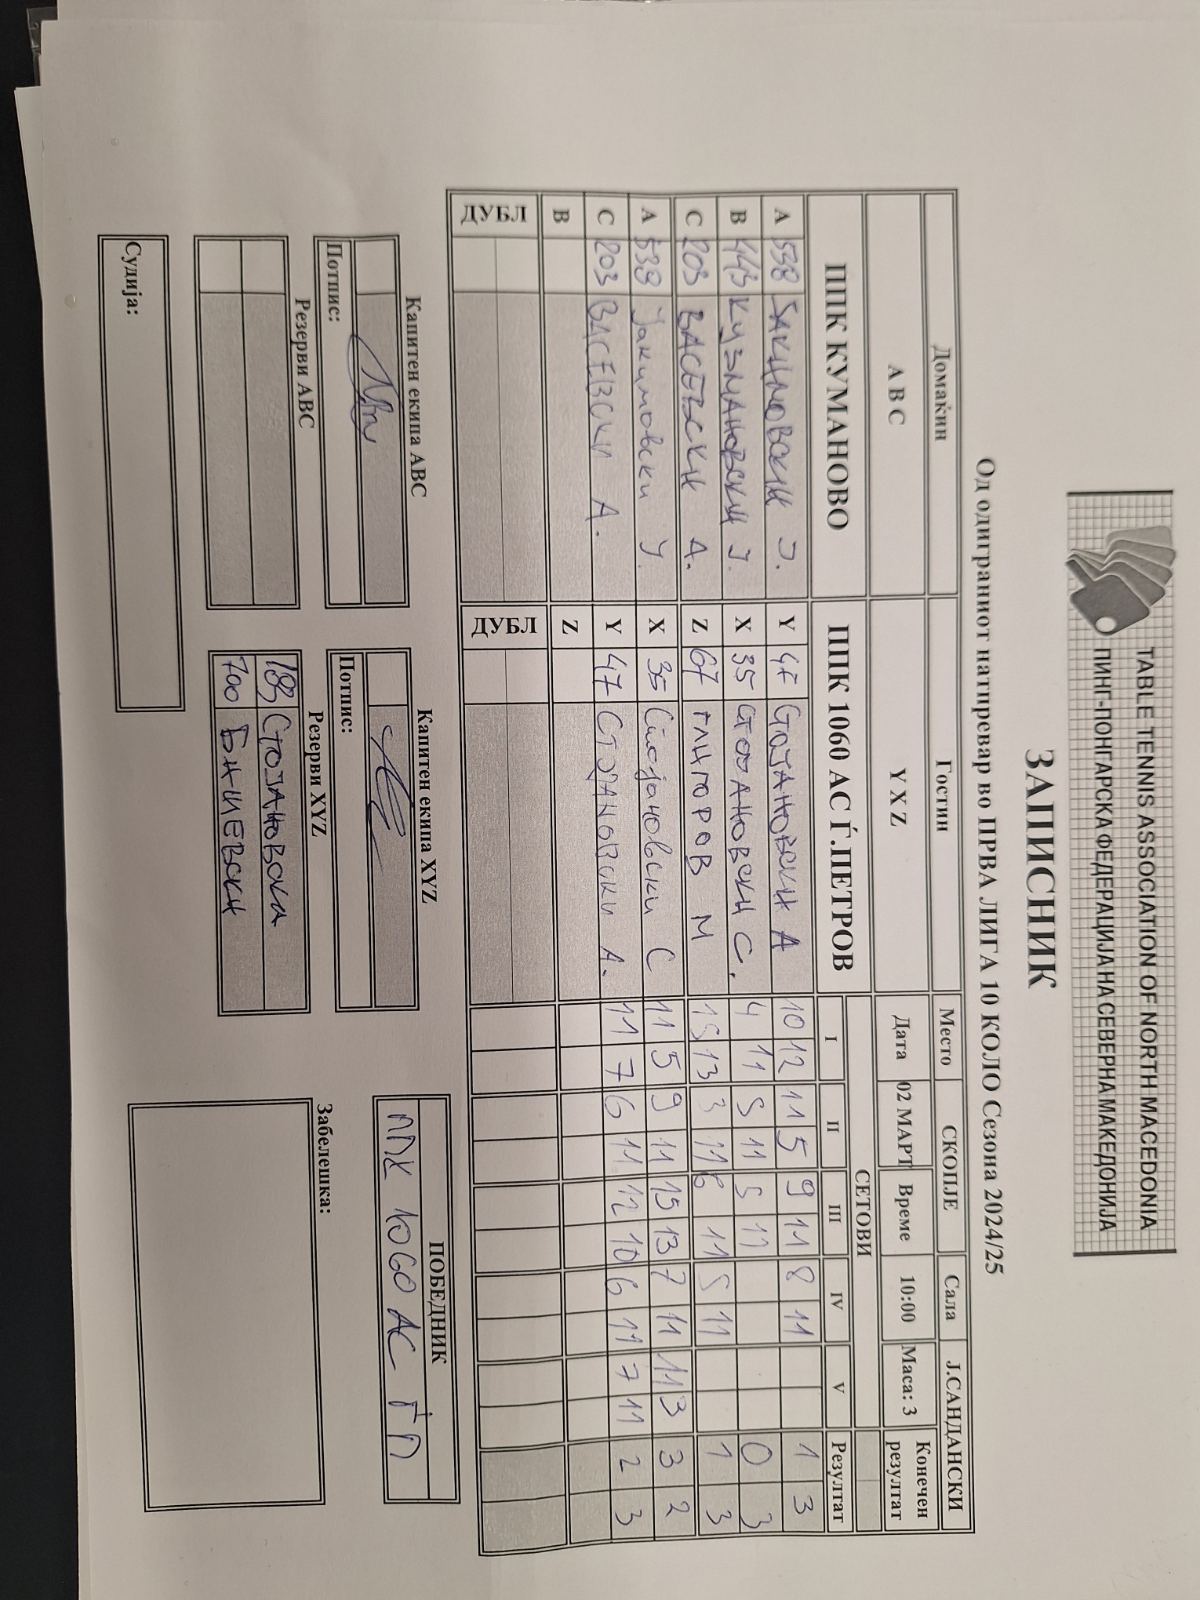 TABLE TENNIS ASSOCIATION OF NORTH MACEDONIA
ПИНГ-ПОНГАРСКА ФЕДЕРАЦИЈА НА СЕВЕРНА МАКЕДОНИЈА
ЗАПИСНИК
Од одиграниот натпревар во ПРВА ЛИГА 10 КОЛО Сезона 2024/25
Домаќин Гостин Место СКОПЈЕ Сала Ј.САНДАНСКИ
A B C Y X Z Дата 02 МАРТ Време 10:00 Маса: 3 Конечен резултат
СЕТОВИ
ППК КУМАНОВО ППК 1060 АС Ѓ.ПЕТРОВ I II III IV V Резултат
A 538 ЈАКИМОВСКИ Ј. Y 47 СТОЈАНОВСКИ А 10 12 11 5 9 11 8 11 1 3
B 443 КУЗМАНОВСКИ Ј. X 35 СТОЈАНОВСКИ С. 4 11 5 11 5 11 0 3
C 203 ВАСЕВСКИ А. Z 67 ГЛИГОРОВ М 15 13 3 11 6 11 5 11 1 3
A 538 Јакимовски Ј. X 35 Стојановски С 11 5 9 11 15 13 7 11 11 3 3 2
C 203 ВАСЕВСКИ А. Y 47 СТОЈАНОВСКИ А. 11 7 6 11 12 10 6 11 7 11 2 3
B Z
ДУБЛ ДУБЛ
Капитен екипа ABC Капитен екипа XYZ ПОБЕДНИК
ППК 1060 АС Ѓ П
Потпис: Потпис:
Резерви ABC Резерви XYZ Забелешка:
189 СТОЈАНОВСКА
700 БНИЕВСКИ
Судија: